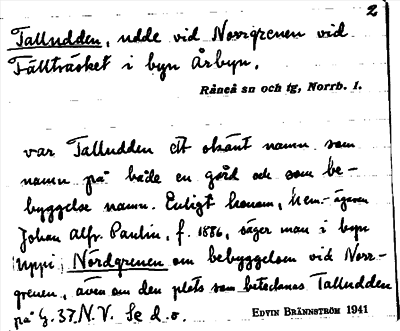 2
Talludden, udde vid Norrgrenen vid
Fällträsket i byn Årbyn.
Råneå sn och tg, Norrb. l.
var Talludden ett okänt namn som
namn på både en gård och som be-
byggelse namn. Enligt honom, hem.-ägaren
Johan Alfr. Paulin, f. 1886, säger man i byn
uppi Nordgrenen om bebyggelsen vid Norr-
grenen, även om den plats som betecknas Talludden
på G. 37.N.V. Se d.o.
EDVIN BRÄNNSTRÖM 1941